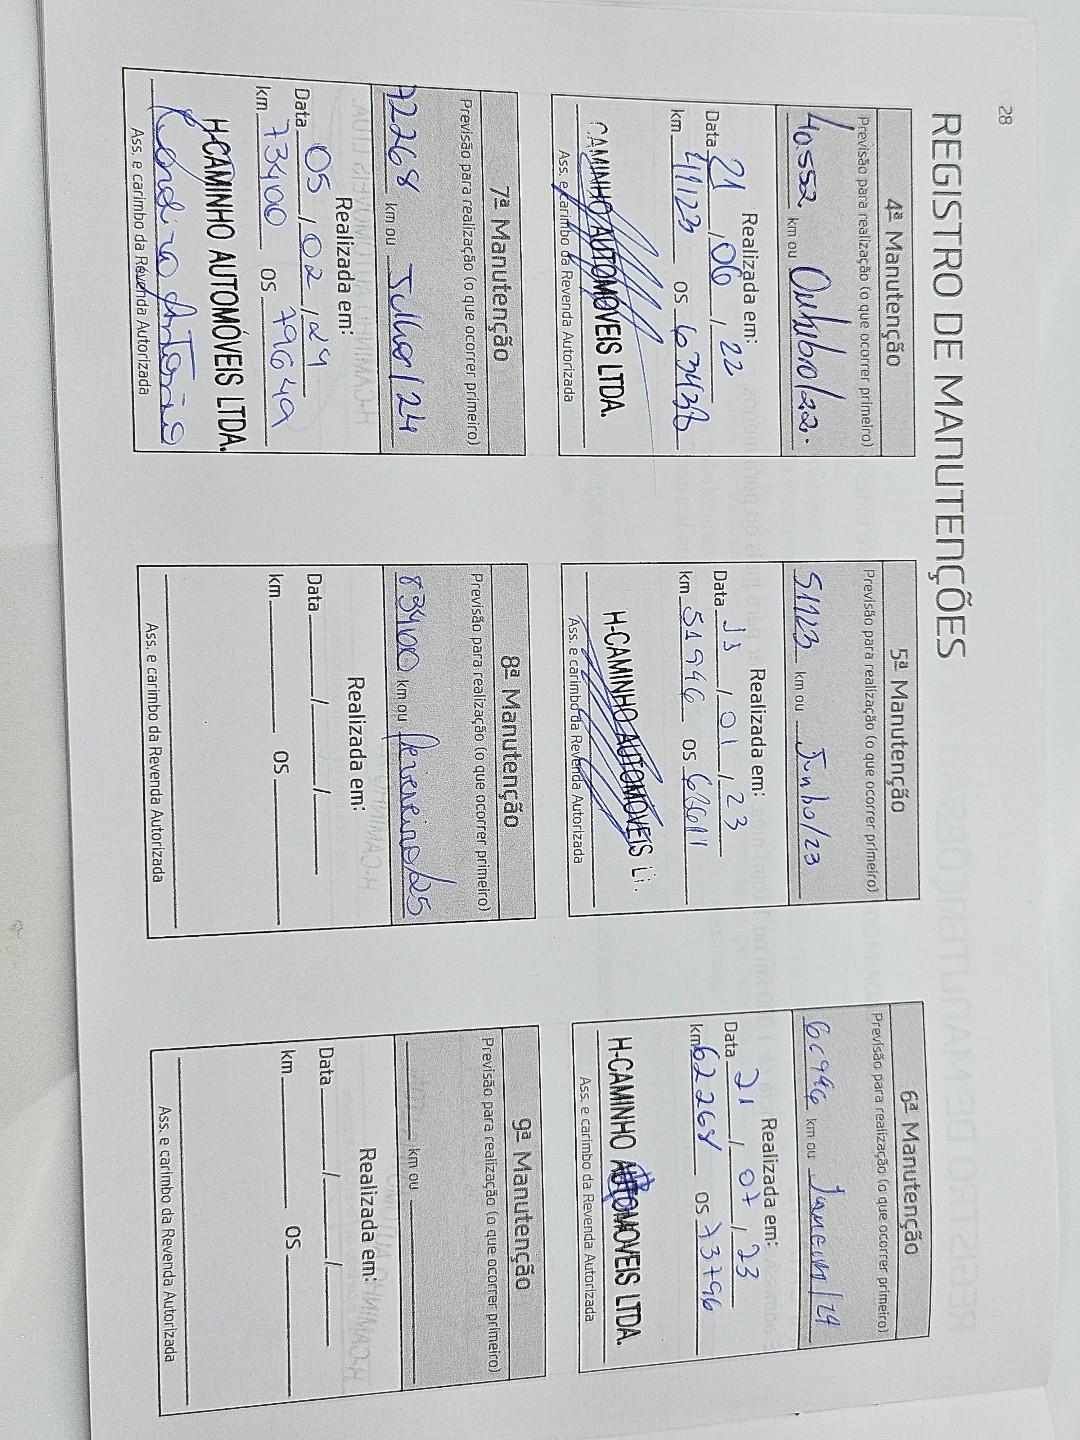 28
REGISTRO DE MANUTENÇÕES
4ª Manutenção
Previsão para realização (o que ocorrer primeiro)
40552 km ou Outubro/22.
Realizada em:
Data 21 / 06 / 22
km 41123 OS 63438
CAMINHO AUTOMOVEIS LTDA.
Ass. e carimbo da Revenda Autorizada
5ª Manutenção
Previsão para realização (o que ocorrer primeiro)
51123 km ou Junho/23
Realizada em:
Data 13 / 01 / 23
km 51946 OS 68611
H-CAMINHO AUTOMOVEIS LT.
Ass. e carimbo da Revenda Autorizada
6ª Manutenção
Previsão para realização (o que ocorrer primeiro)
km ou Janeiro/24
Realizada em:
Data 21 / 07 / 23
km 62268 OS 73796
H-CAMINHO AUTOMOVEIS LTDA.
Ass. e carimbo da Revenda Autorizada
7ª Manutenção
Previsão para realização (o que ocorrer primeiro)
72268 km ou Julho/24
Realizada em:
Data 05 / 02 / 24
km 73400 OS 79649
H-CAMINHO AUTOMÓVEIS LTDA.
Antonio
Ass. e carimbo da Revenda Autorizada
8ª Manutenção
Previsão para realização (o que ocorrer primeiro)
83400 km ou Fevereiro/25
Realizada em:
Data / /
km OS
Ass. e carimbo da Revenda Autorizada
9ª Manutenção
Previsão para realização (o que ocorrer primeiro)
km ou
Realizada em:
Data / /
km OS
Ass. e carimbo da Revenda Autorizada